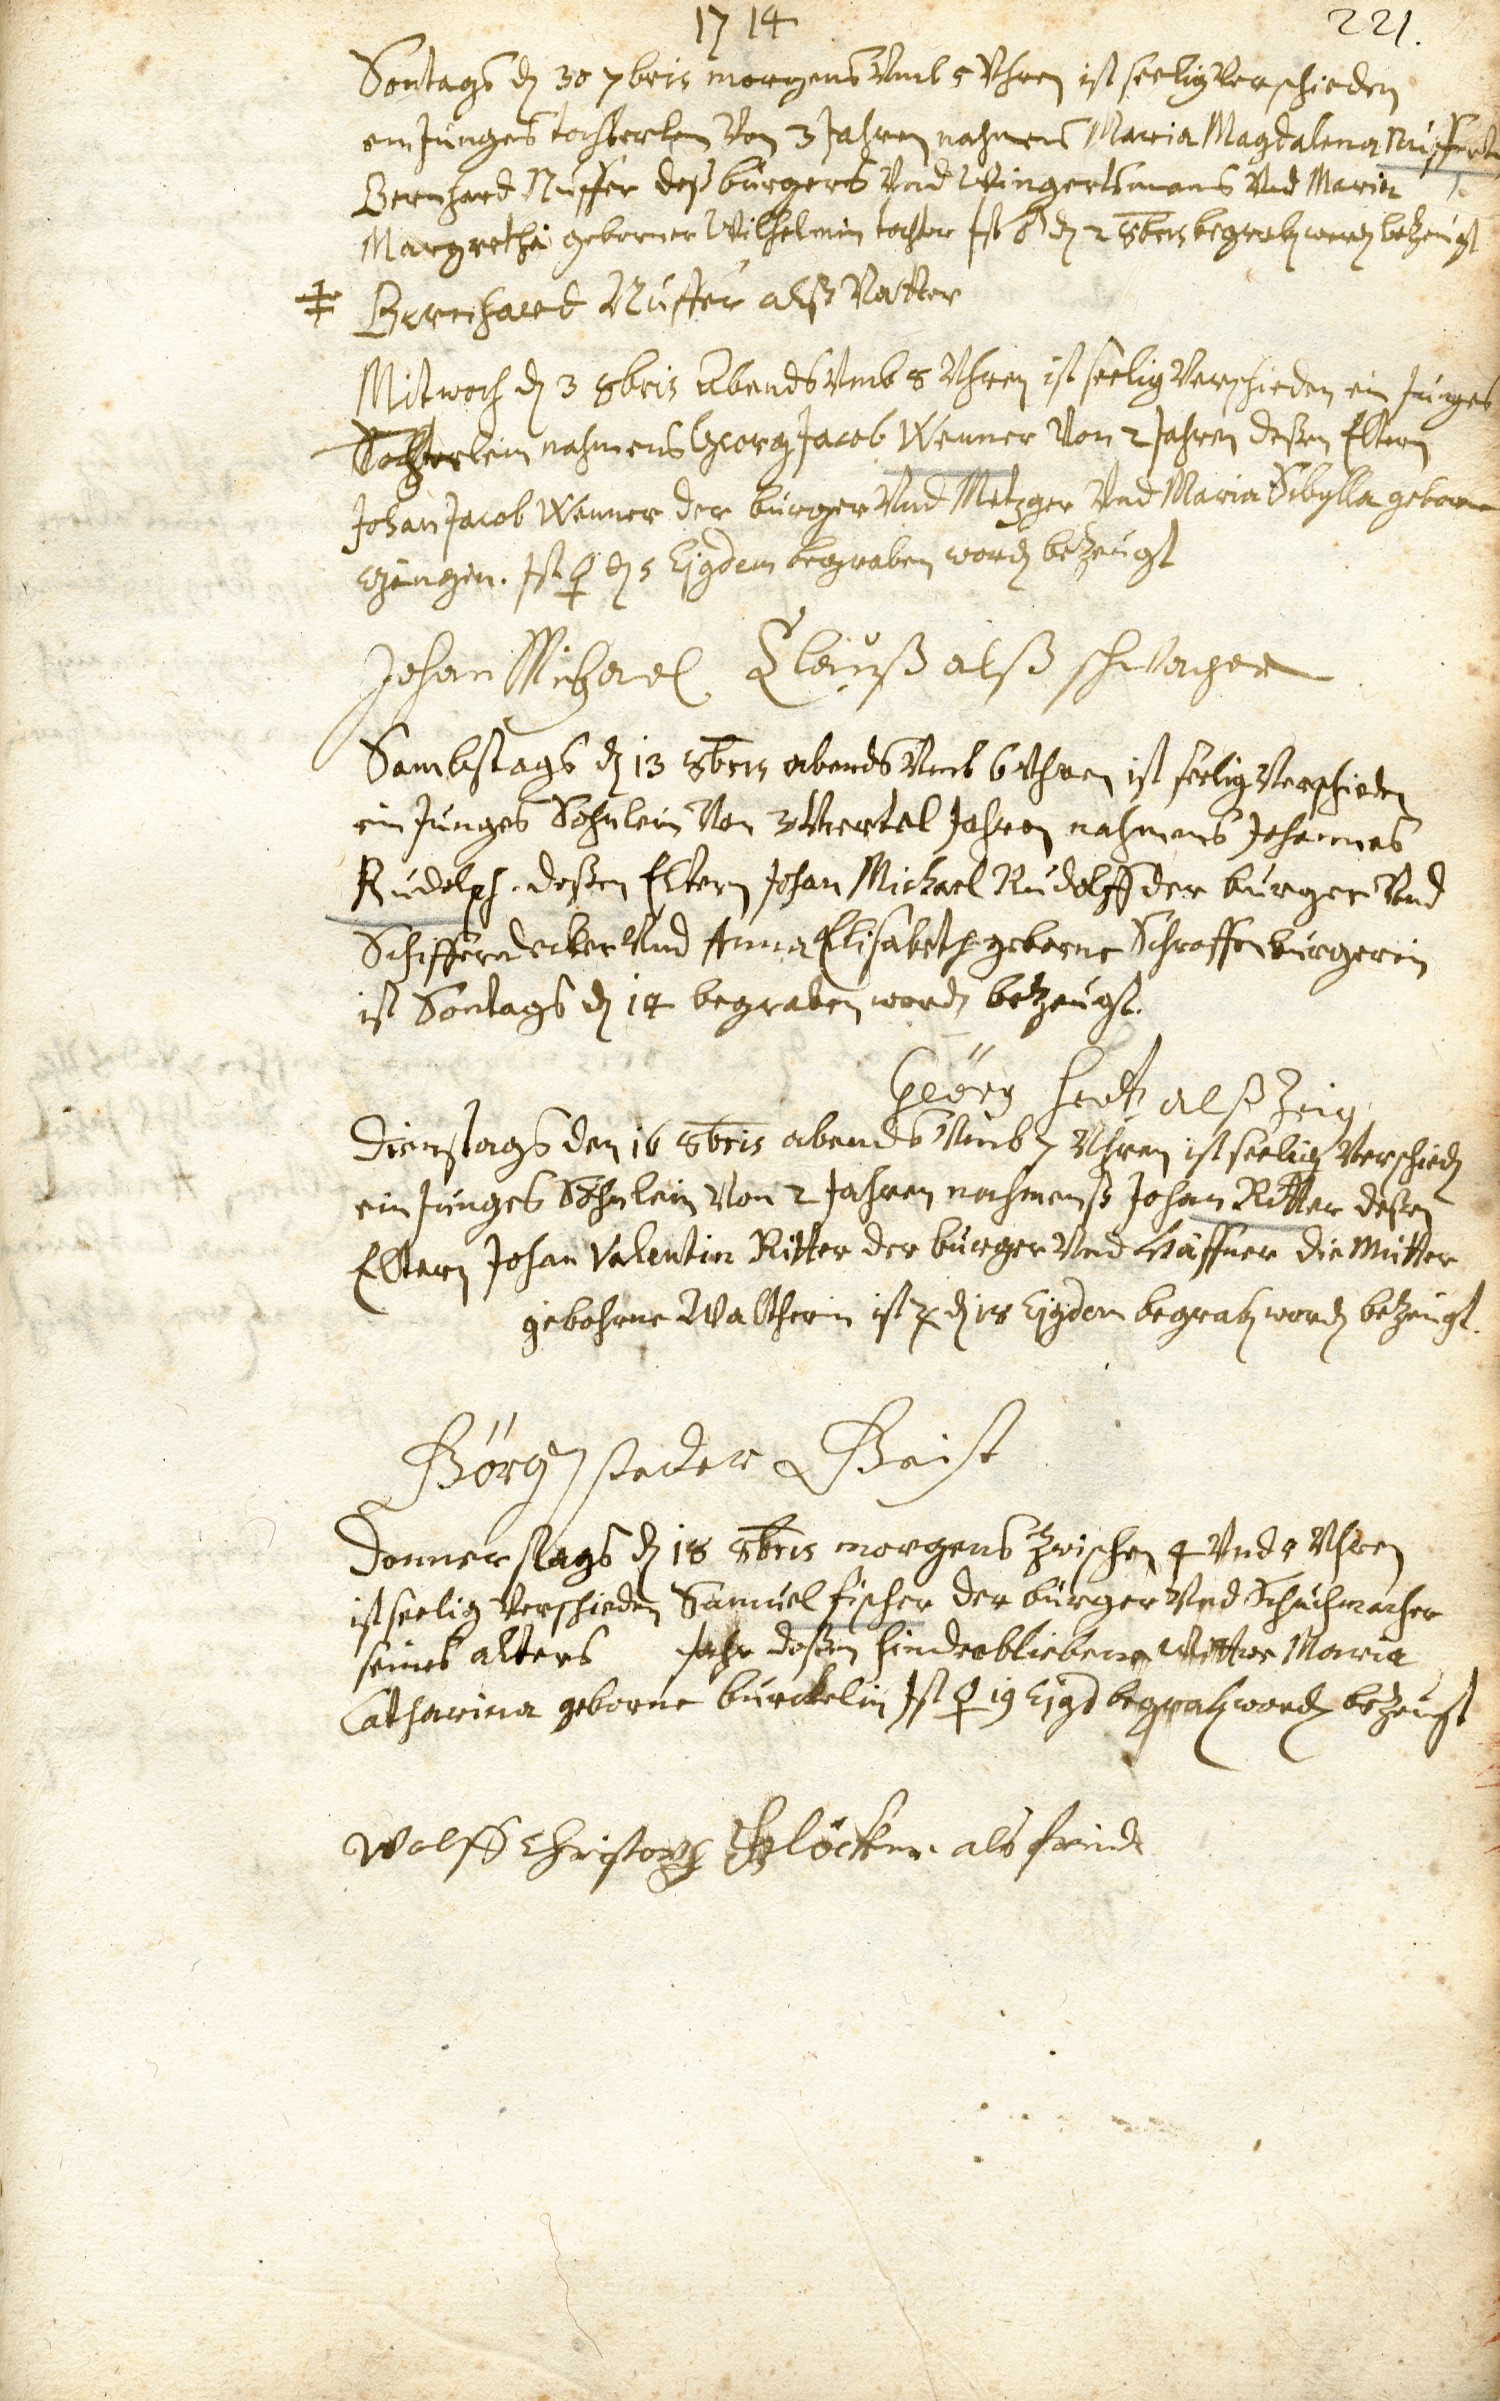 1714
221.
Sontags dȷ 30 7bris morgens Vmb 5 Vhren ist seelig Verschieden
ein Junges tochterlen Von 3 Jahren nahmens Maria Magdalena
Bernhard Nuffer deß burgers Vnd Wingertsmans Vnd Maria
Margretha geborner Wilhelmin tochter Ist ♂ dȷ 2 8bris begrabȷ wordȷ betzeugt
Bernhard Nuffer alß Vatter
Mitwoch dȷ 3 8bris Abends Vmb 8 Vhren ist seelig Verschieden ein Junges
nahmens Georg Jacob Wenner Von 2 Jahren deßen Eltern
Johan Jacob Wenner der burger Vnd Metzger Vnd Maria Sibylla geborne
Ist ♀ dȷ 5 Ejgdem begraben wordȷ betzeugt
Johan Michael Clauß alß schwager
Sambstags dȷ 13 8bris abends Vmb 6 Vhren ist seelig Verschieden
ein Junges Söhnlein Von 3 Viertel Jahren nahmens Johannes
Rudolph. deßen Eltern Johan Michael Rudolff der burger Vnd
Schifferdecker Vnd Anna Elisabeth geborne Schroffenburgerin
ist Sontags dȷ 14 begraben wordȷ betzeugt.
Geörg alß Zeig
Dienstags den 16 8bris abends Vmb 7 Vhren ist seelig Verschiedȷ
ein Junges Söhnlein Von 2 Jahren nahmenß Johan Ritter deßen
Eltern Johan Valentin Ritter der burger Vnd Häffner die Mutter
gebohrne Waltherin ist ♃ dȷ 18 Ejgdem begrabȷ wordȷ betzeugt.
Görg
Donnerstags dȷ 18 8bris morgens zwischen 4 Vnd 5 Vhren
ist seelig Verschieden Samuel Fischer der burger Vnd Schuchmacher
seines alters Jahr deßen hinderbliebene Wittwe Maria
Catharina geborne burckelin Ist ♀ 19 Ejgd begrabȷ wordȷ betzeugt
Wolff Christoph als freind